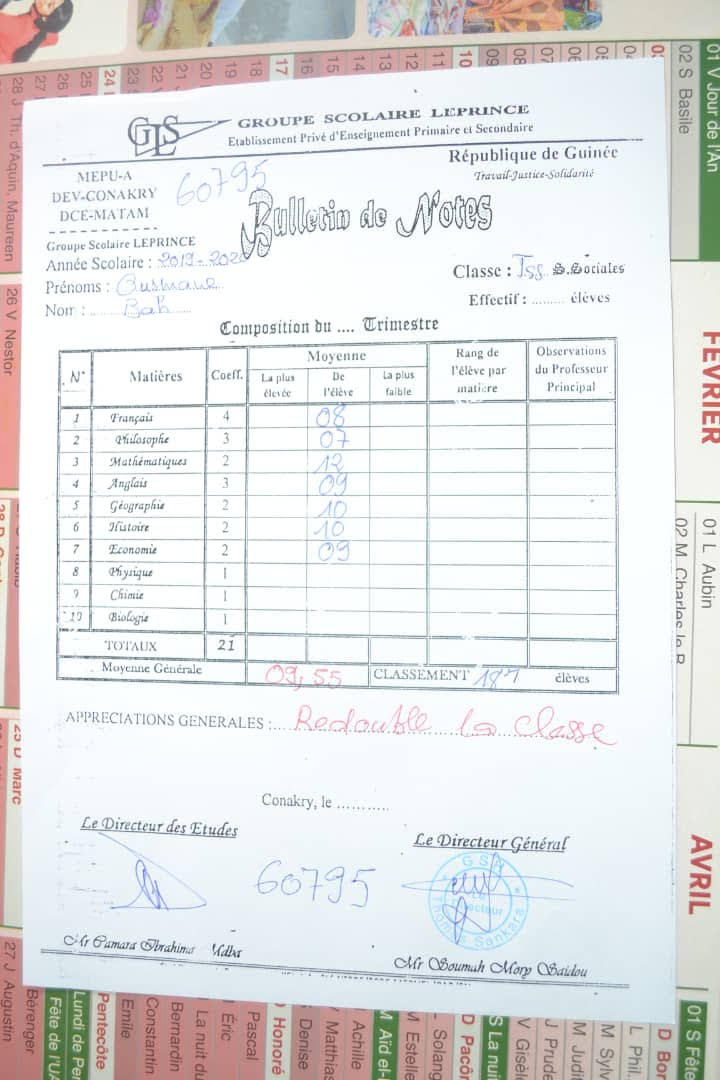 GLS
GROUPE SCOLAIRE LEPRINCE
Etablissement Privé d'Enseignement Primaire et Secondaire
République de Guinée
Travail-Justice-Solidarité
MEPU-A
DEV-CONAKRY
DCE-MATAM
60795
Bulletin de Notes
Groupe Scolaire LEPRINCE
Année Scolaire : 2019-2020
Prénoms : Ousmane
Nom : Bah
Classe : Tss S.Sociales
Effectif : ......... élèves
Composition du .... Trimestre
N° Matières Coeff. Moyenne Rang de l'élève par matière Observations du Professeur Principal
La plus élevée De l'élève La plus faible
1 Français 4 08
2 Philosophe 3 07
3 Mathématiques 2 12
4 Anglais 3 09
5 Géographie 2 10
6 Histoire 2 10
7 Economie 2 09
8 Physique 1
9 Chimie 1
10 Biologie 1
TOTAUX 21
Moyenne Générale 09,55 CLASSEMENT élèves
APPRECIATIONS GENERALES : Redouble la classe
Conakry, le ...........
Le Directeur des Etudes
Le Directeur Général
60795
Thomas Sankara
Mr Camara Ibrahima
Mr Soumah Mory Saidou
01 V Jour de l'An
02 S Basile
FEVRIER
01 L Aubin
AVRIL
28 J Th. d'Aquin, Maureen
26 V Nestor
27 J Augustin
Bérenger
Fête de l'UA
Pentecôte
Emile
Constantin
Bernardin
Éric
Pascal
Honoré
Denise
Achille